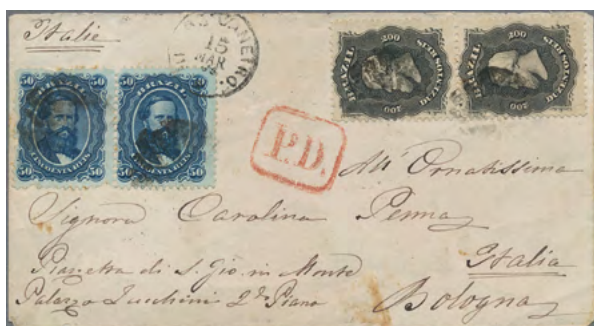 Italie
RIO DE JANEIRO
15
MAR
50 BRAZIL 50
CINCOENTA REIS
50 50
50 BRAZIL 50
CINCOENTA REIS
50 50
BRAZIL
200
DUZENTOS REIS
200
BRAZIL
200
DUZENTOS REIS
200
P.D.
All' Ornatissima
Signora Carolina Penna
Italia
Piazzetta di S. Gio. in Monte
Palazzo Zucchini 2º Piano Bologna